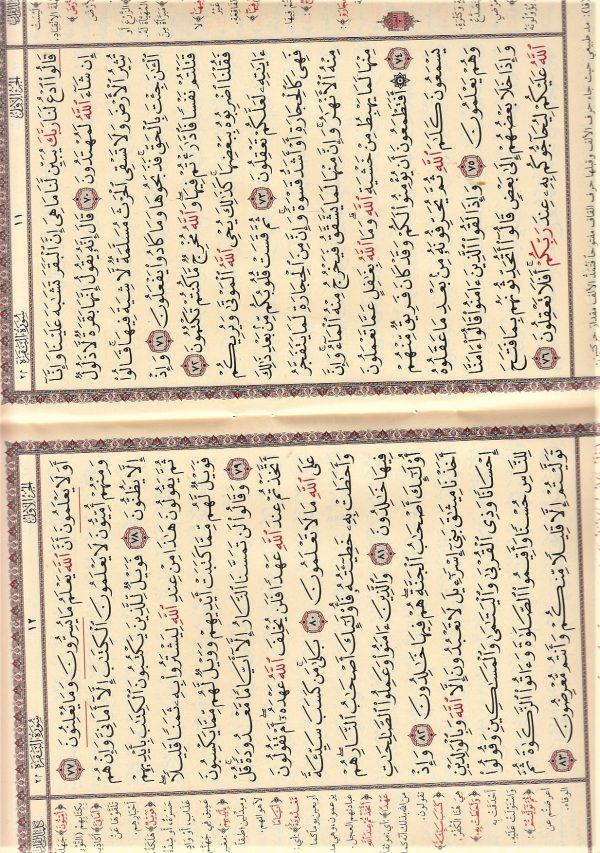 سُورَةُ البَقَرَةِ ٢
١١
الجُزْءُ الأَوَّلُ
قَالُوا۟ ٱدْعُ لَنَا رَبَّكَ يُبَيِّن لَّنَا مَا هِىَ إِنَّ ٱلْبَقَرَ تَشَٰبَهَ عَلَيْنَا وَإِنَّآ
إِن شَآءَ ٱللَّهُ لَمُهْتَدُونَ ٧٠ قَالَ إِنَّهُۥ يَقُولُ إِنَّهَا بَقَرَةٌ لَّا ذَلُولٌ
تُثِيرُ ٱلْأَرْضَ وَلَا تَسْقِى ٱلْحَرْثَ مُسَلَّمَةٌ لَّا شِيَةَ فِيهَا قَالُوا۟
ٱلْـَٰٔنَ جِئْتَ بِٱلْحَقِّ فَذَبَحُوهَا وَمَا كَادُوا۟ يَفْعَلُونَ ٧١ وَإِذْ
قَتَلْتُمْ نَفْسًا فَٱدَّٰرَْٰٔتُمْ فِيهَا وَٱللَّهُ مُخْرِجٌ مَّا كُنتُمْ تَكْتُمُونَ ٧٢
فَقُلْنَا ٱضْرِبُوهُ بِبَعْضِهَا كَذَٰلِكَ يُحْىِ ٱللَّهُ ٱلْمَوْتَىٰ وَيُرِيكُمْ
ءَايَٰتِهِۦ لَعَلَّكُمْ تَعْقِلُونَ ٧٣ ثُمَّ قَسَتْ قُلُوبُكُم مِّنۢ بَعْدِ ذَٰلِكَ
فَهِىَ كَٱلْحِجَارَةِ أَوْ أَشَدُّ قَسْوَةً وَإِنَّ مِنَ ٱلْحِجَارَةِ لَمَا يَتَفَجَّرُ
مِنْهُ ٱلْأَنْهَٰرُ وَإِنَّ مِنْهَا لَمَا يَشَّقَّقُ فَيَخْرُجُ مِنْهُ ٱلْمَآءُ وَإِنَّ
مِنْهَا لَمَا يَهْبِطُ مِنْ خَشْيَةِ ٱللَّهِ وَمَا ٱللَّهُ بِغَٰفِلٍ عَمَّا تَعْمَلُونَ
٧٤ ۞ أَفَتَطْمَعُونَ أَن يُؤْمِنُوا۟ لَكُمْ وَقَدْ كَانَ فَرِيقٌ مِّنْهُمْ
يَسْمَعُونَ كَلَٰمَ ٱللَّهِ ثُمَّ يُحَرِّفُونَهُۥ مِنۢ بَعْدِ مَا عَقَلُوهُ
وَهُمْ يَعْلَمُونَ ٧٥ وَإِذَا لَقُوا۟ ٱلَّذِينَ ءَامَنُوا۟ قَالُوٓا۟ ءَامَنَّا
وَإِذَا خَلَا بَعْضُهُمْ إِلَىٰ بَعْضٍ قَالُوٓا۟ أَتُحَدِّثُونَهُم بِمَا فَتَحَ
ٱللَّهُ عَلَيْكُمْ لِيُحَآجُّوكُم بِهِۦ عِندَ رَبِّكُمْ أَفَلَا تَعْقِلُونَ ٧٦
سُورَةُ البَقَرَةِ ٢
١٢
الجُزْءُ الأَوَّلُ
أَوَلَا يَعْلَمُونَ أَنَّ ٱللَّهَ يَعْلَمُ مَا يُسِرُّونَ وَمَا يُعْلِنُونَ ٧٧
وَمِنْهُمْ أُمِّيُّونَ لَا يَعْلَمُونَ ٱلْكِتَٰبَ إِلَّآ أَمَانِىَّ وَإِنْ هُمْ
إِلَّا يَظُنُّونَ ٧٨ فَوَيْلٌ لِّلَّذِينَ يَكْتُبُونَ ٱلْكِتَٰبَ بِأَيْدِيهِمْ
ثُمَّ يَقُولُونَ هَٰذَا مِنْ عِندِ ٱللَّهِ لِيَشْتَرُوا۟ بِهِۦ ثَمَنًا قَلِيلًا
فَوَيْلٌ لَّهُم مِّمَّا كَتَبَتْ أَيْدِيهِمْ وَوَيْلٌ لَّهُم مِّمَّا يَكْسِبُونَ
٧٩ وَقَالُوا۟ لَن تَمَسَّنَا ٱلنَّارُ إِلَّآ أَيَّامًا مَّعْدُودَةً قُلْ
أَتَّخَذْتُمْ عِندَ ٱللَّهِ عَهْدًا فَلَن يُخْلِفَ ٱللَّهُ عَهْدَهُۥٓ أَمْ تَقُولُونَ
عَلَى ٱللَّهِ مَا لَا تَعْلَمُونَ ٨٠ بَلَىٰ مَن كَسَبَ سَيِّئَةً
وَأَحَٰطَتْ بِهِۦ خَطِيٓـَٔتُهُۥ فَأُو۟لَٰٓئِكَ أَصْحَٰبُ ٱلنَّارِ هُمْ
فِيهَا خَٰلِدُونَ ٨١ وَٱلَّذِينَ ءَامَنُوا۟ وَعَمِلُوا۟ ٱلصَّٰلِحَٰتِ
أُو۟لَٰٓئِكَ أَصْحَٰبُ ٱلْجَنَّةِ هُمْ فِيهَا خَٰلِدُونَ ٨٢ وَإِذْ
أَخَذْنَا مِيثَٰقَ بَنِىٓ إِسْرَٰٓءِيلَ لَا تَعْبُدُونَ إِلَّا ٱللَّهَ وَبِٱلْوَٰلِدَيْنِ
إِحْسَانًا وَذِى ٱلْقُرْبَىٰ وَٱلْيَتَٰمَىٰ وَٱلْمَسَٰكِينِ وَقُولُوا۟
لِلنَّاسِ حُسْنًا وَأَقِيمُوا۟ ٱلصَّلَوٰةَ وَءَاتُوا۟ ٱلزَّكَوٰةَ ثُمَّ
تَوَلَّيْتُمْ إِلَّا قَلِيلًا مِّنكُمْ وَأَنتُم مُّعْرِضُونَ ٨٣